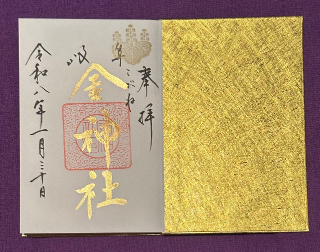 奉拝
岐阜
こがね
金神社
令和八年一月三十日